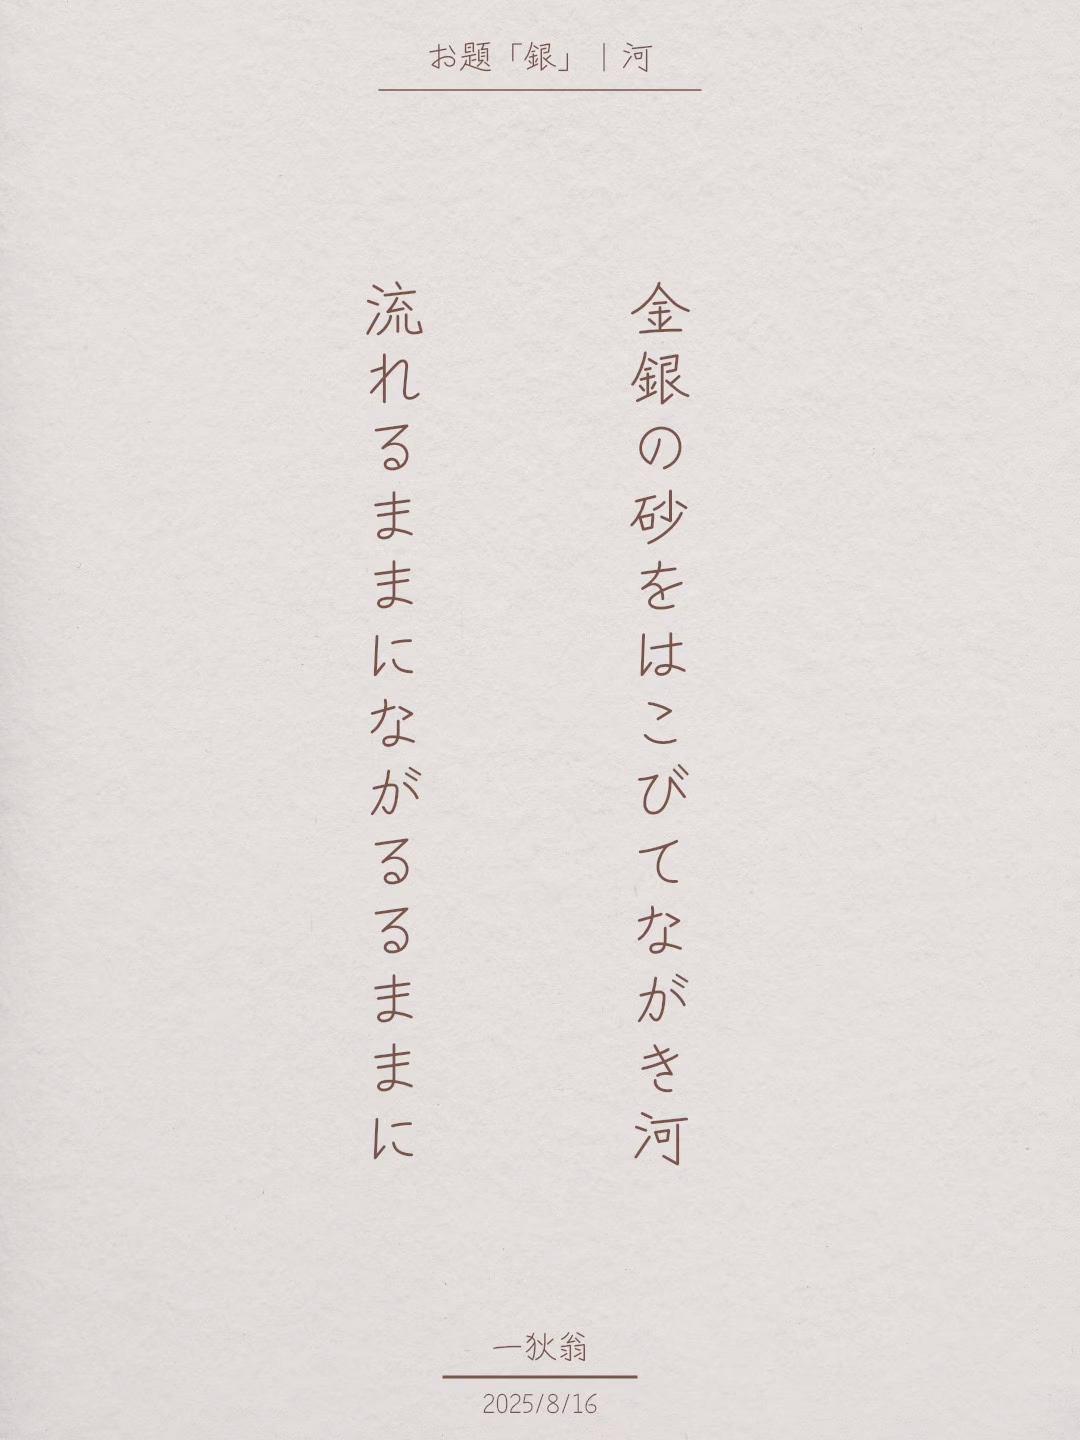 お題「銀」｜河
金銀の砂をはこびてながき河
流れるままにながるるままに
一狄翁
2025/8/16